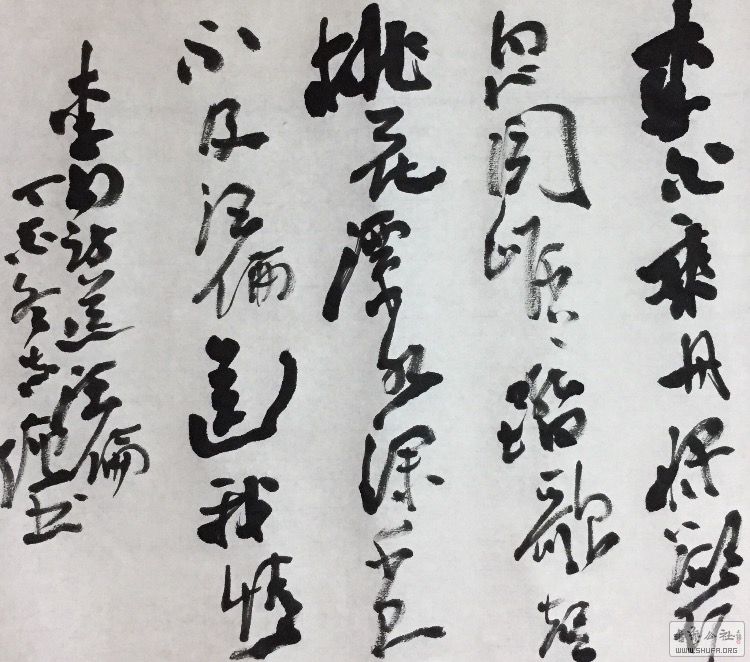 李白乘舟將欲行
忽聞岸上踏歌聲
桃花潭水深千尺
不及汪倫送我情
李白詩送汪倫
冬吉书
公社
WWW.SHUFA.ORG